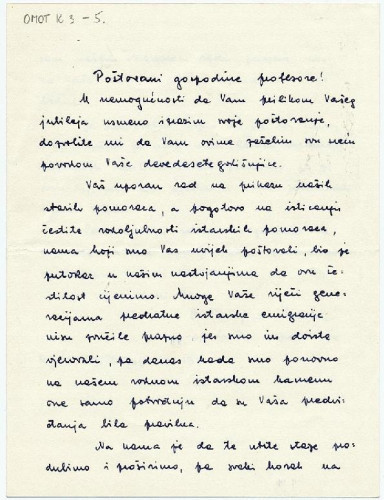 OMOT K 3 - 5.
Poštovani gospodine profesore!
U nemogućnosti da Vam prilikom Vašeg
jubileja usmeno izrazim svoje poštovanje,
dozvolite mi da Vam ovime zaželim svu sreću
povodom Vaše devedesetgodišnjice.
Vaš uporan rad na prikazu naših
starih pomoraca, a pogotovo na isticanju
čestite rodoljubnosti istarskih pomoraca,
nama koji smo Vas uvijek poštovali, bio je
putokaz u našim nastojanjima da ovu če-
stitost cijenimo. Mnoge Vaše riječi gene-
racijama predratne istarske emigracije
nisu zvučile prazno, jer smo im doista
vjerovali, pa danas kada smo ponovno
na našem rodnom istarskom kamenu
one samo potvrđuju da su Vaša predvi-
đanja bila pravilna.
Na nama je da te utrte staze pro-
dubimo i proširimo, pa svaki korak na